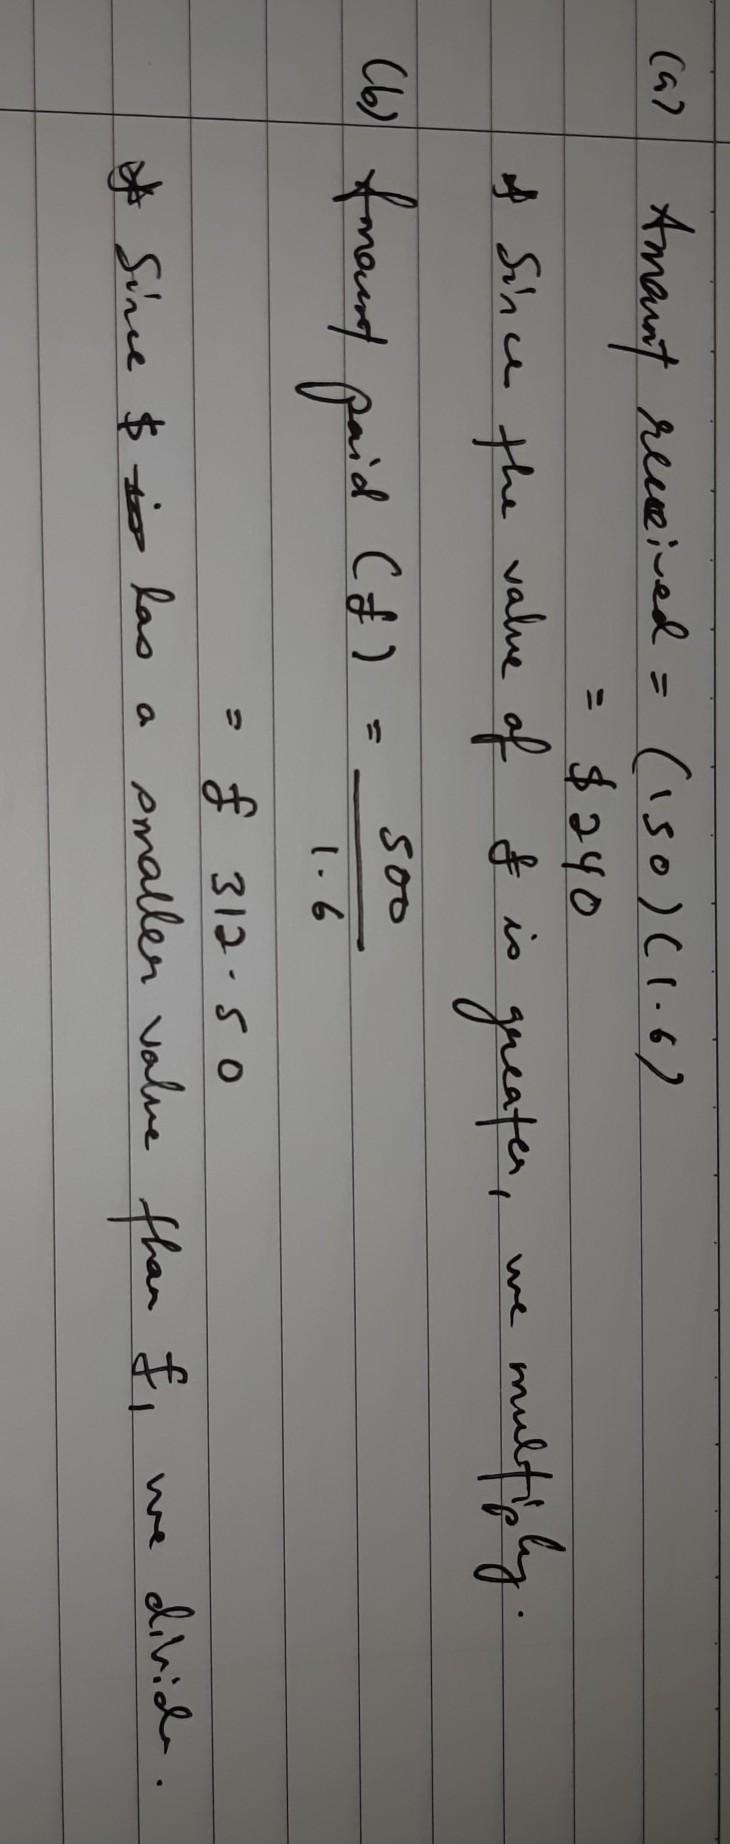 (a) Amount received = (150)(1.6)
= $ 240
* Since the value of £ is greater, we multiply.
(b) Amount paid (£) = 500
1.6
= £ 312.50
* Since $ has a smaller value than £, we divide.